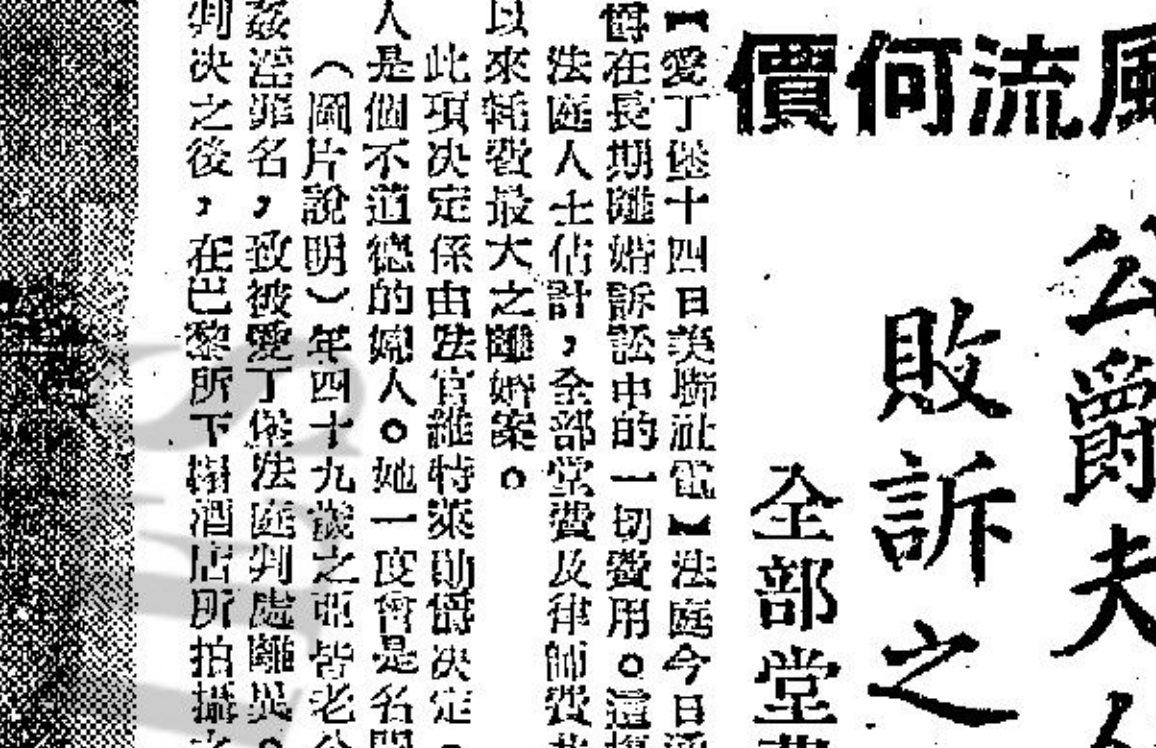 風流何價
公爵夫人
敗訴之
全部堂費
【愛丁堡十四日美聯社電】法庭今日
爵在長期離婚訴訟中的一切費用。這
法庭人士估計，全部堂費及律師費
以來耗費最大之離婚案。
此項決定係由法官維特萊勛爵決定。
人是個不道德的婦人。她一度曾是名
（圖片說明）年四十九歲之亞皆老公
姦淫罪名，致被愛丁堡法庭判處離異。
判決之後，在巴黎所下榻酒店所拍攝之